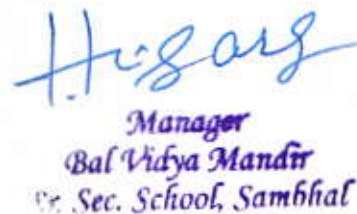 Manager
Bal Vidya Mandir
Sr. Sec. School, Sambhal